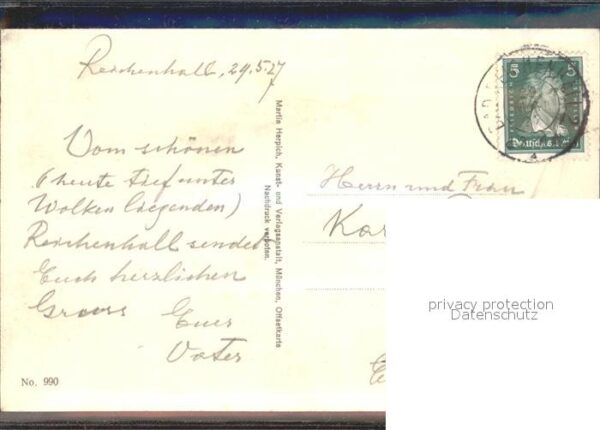 Reichenhall, 29.5.27
Vom schönen
(heute tief unter
Wolken liegenden)
Reichenhall sendet
Euch herzlichen
Gruss Euer
Vater
No. 990
Martin Herpich, Kunst- und Verlagsanstalt, München, Offsetkarte
Nachdruck verboten.
5 5
Herrn und Frau
Kar
privacy protection
Datenschutz